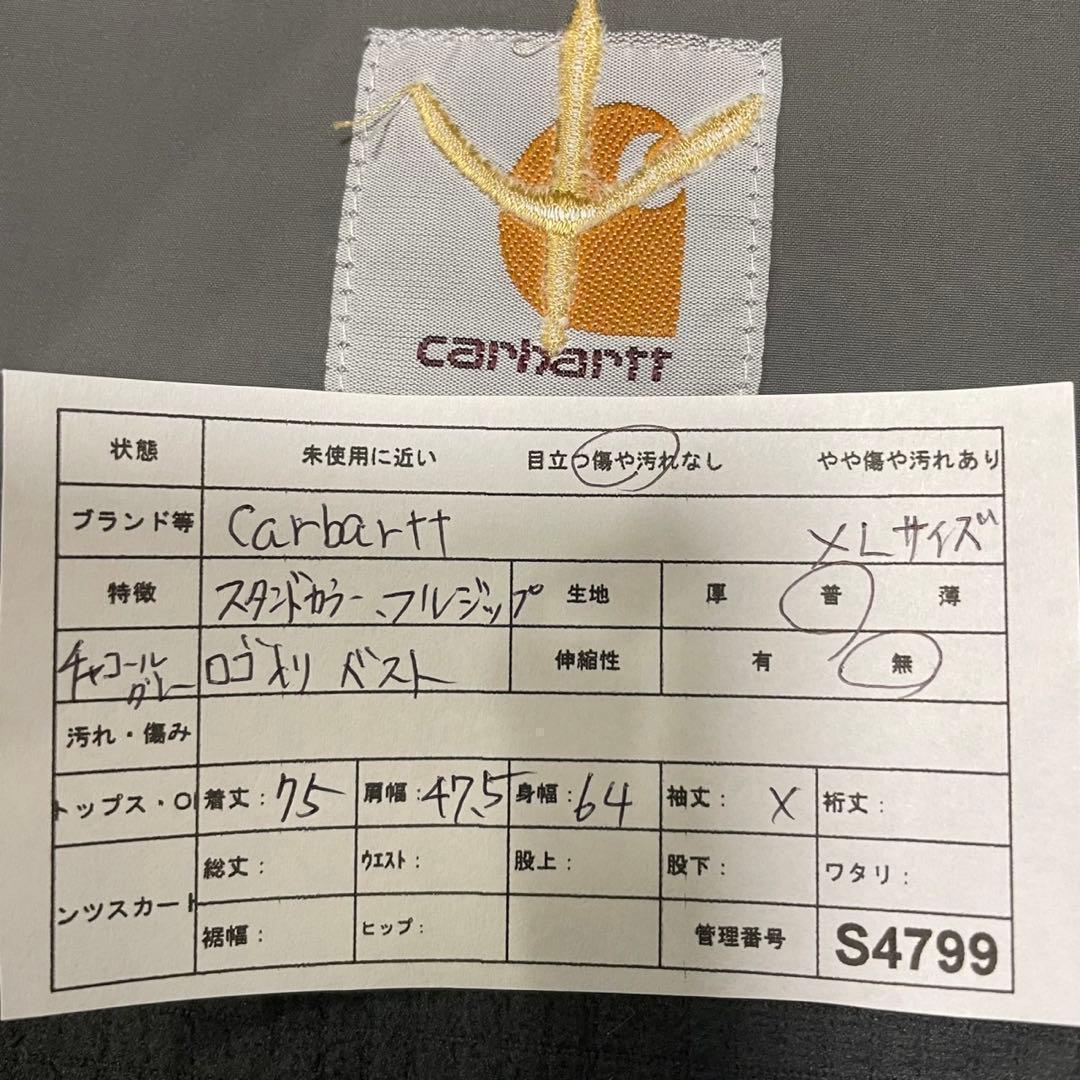 carhartt
状態 未使用に近い 目立つ傷や汚れなし やや傷や汚れあり
ブランド等 Carbartt XLサイズ
特徴 スタンドカラー、フルジップ 生地 厚 普 薄
チャコールグレー ロゴ入り ベスト 伸縮性 有 無
汚れ・傷み
トップス・O 着丈：75 肩幅：47.5 身幅：64 袖丈：X 裄丈：
ンツスカート 総丈： ウエスト： 股上： 股下： ワタリ：
裾幅： ヒップ： 管理番号 S4799